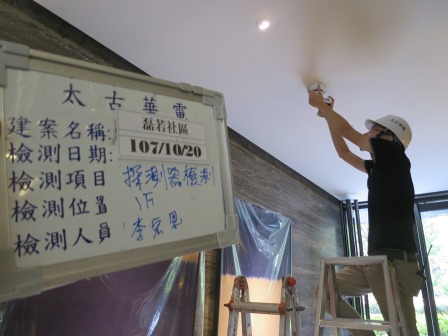 太古華電
建案名稱: 磊若社區
檢測日期: 107/10/20
檢測項目 探測器檢測
檢測位置 1F
檢測人員: 李宗恩